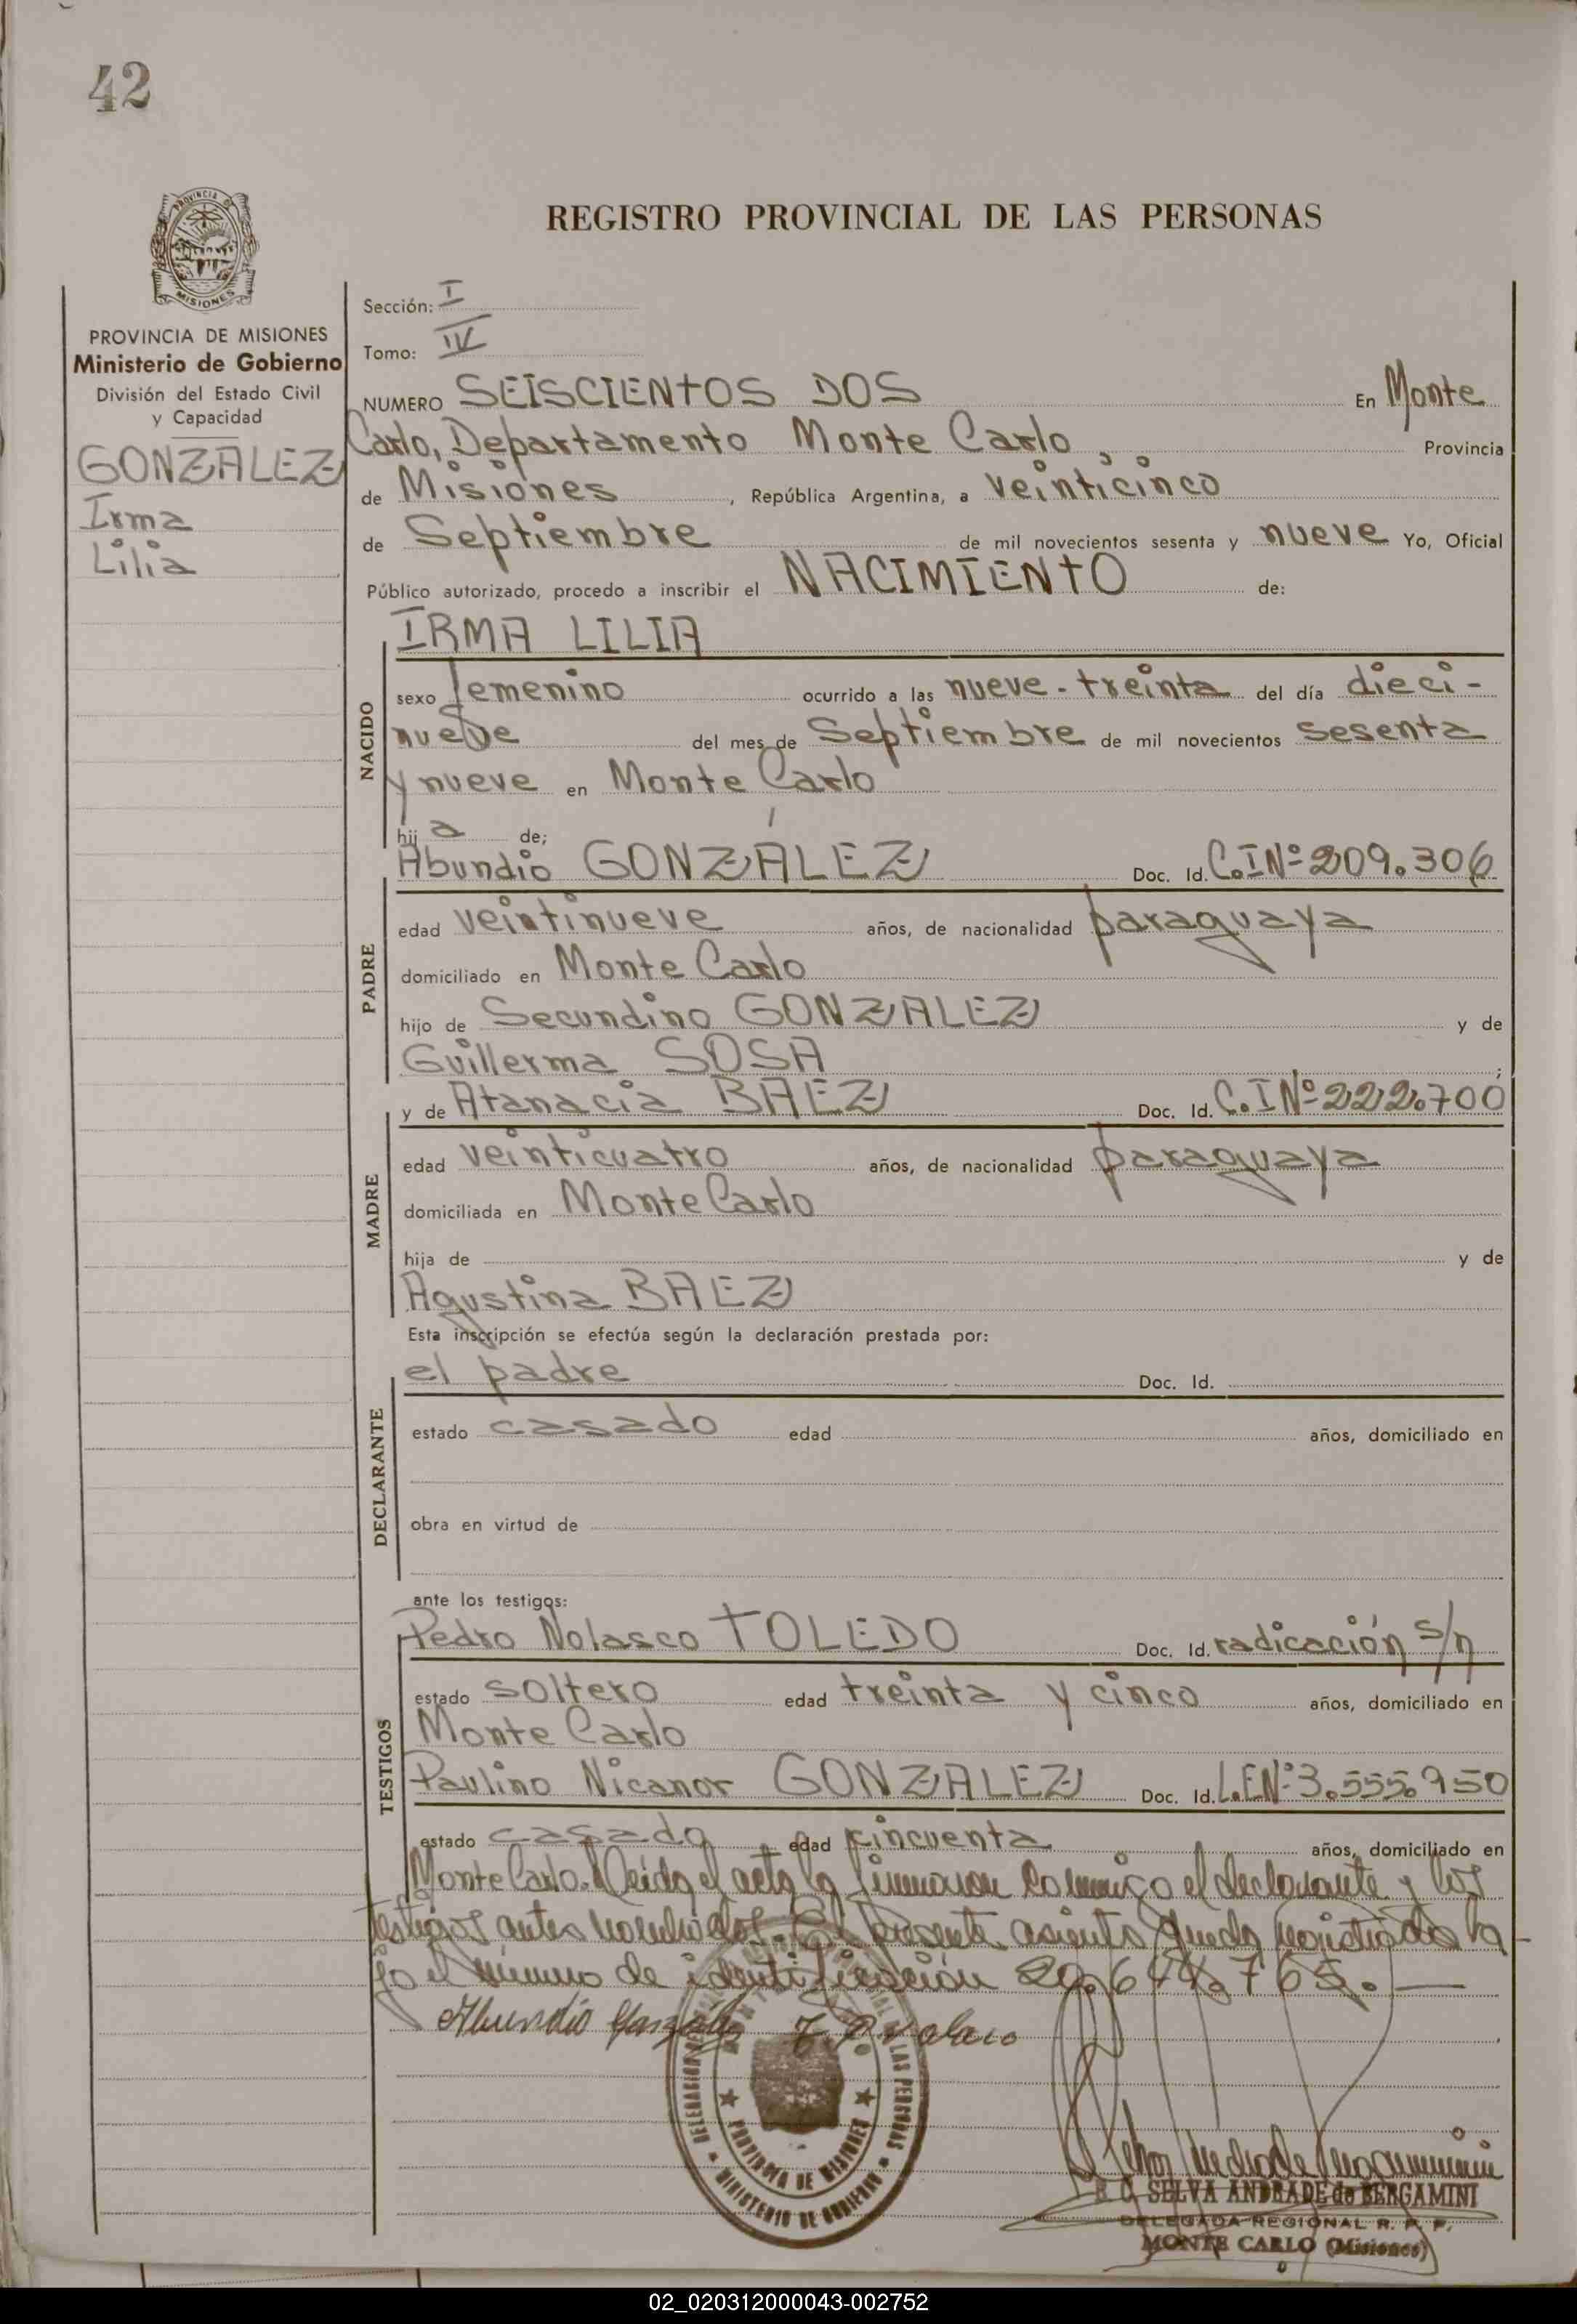 42
PROVINCIA DE
MISIONES
PROVINCIA DE MISIONES
Ministerio de Gobierno
División del Estado Civil
y Capacidad
GONZALEZ
Irma
Lilia
REGISTRO PROVINCIAL DE LAS PERSONAS
Sección: I
Tomo: IV
NUMERO SEISCIENTOS DOS En Monte
Carlo, Departamento Monte Carlo, Provincia
de Misiones, República Argentina, a veinticinco
de Septiembre de mil novecientos sesenta y nueve Yo, Oficial
Público autorizado, procedo a inscribir el NACIMIENTO de:
IRMA LILIA
NACIDO
sexo femenino ocurrido a las nueve-treinta del día dieci-
nueve del mes de Septiembre de mil novecientos sesenta
y nueve en Monte Carlo
hij a de;
Abundio GONZÁLEZ Doc. Id. C.I Nº 209.306
PADRE
edad veintinueve años, de nacionalidad paraguaya
domiciliado en Monte Carlo
hijo de Secundino GONZALEZ y de
Guillerma SOSA ;
y de Atanacia BAEZ Doc. Id. C.I Nº 222.700
MADRE
edad veinticuatro años, de nacionalidad paraguaya
domiciliada en Monte Carlo
hija de y de
Agustina BAEZ
Esta inscripción se efectúa según la declaración prestada por:
el padre Doc. Id.
DECLARANTE
estado casado edad años, domiciliado en
obra en virtud de
ante los testigos:
Pedro Nolasco TOLEDO Doc. Id. radicación s/n
TESTIGOS
estado soltero edad treinta y cinco años, domiciliado en
Monte Carlo
Paulino Nicanor GONZALEZ Doc. Id. L.E Nº 3.555.950
estado casado edad cincuenta años, domiciliado en
Monte Carlo. Leída el acta la firmaron conmigo el declarante y los
testigos antes nombrados. El presente asiento queda registrado ba
jo el número de identificación 20.644.765.
Abundio González
DELEGACION LAS PERSONAS
PROVINCIA DE MISIONES
MINISTERIO DE GOBIERNO
SELVA ANDRADE de BERGAMINI
DELEGADA REGIONAL R. P. P.
MONTE CARLO (Misiones)
02_020312000043-002752